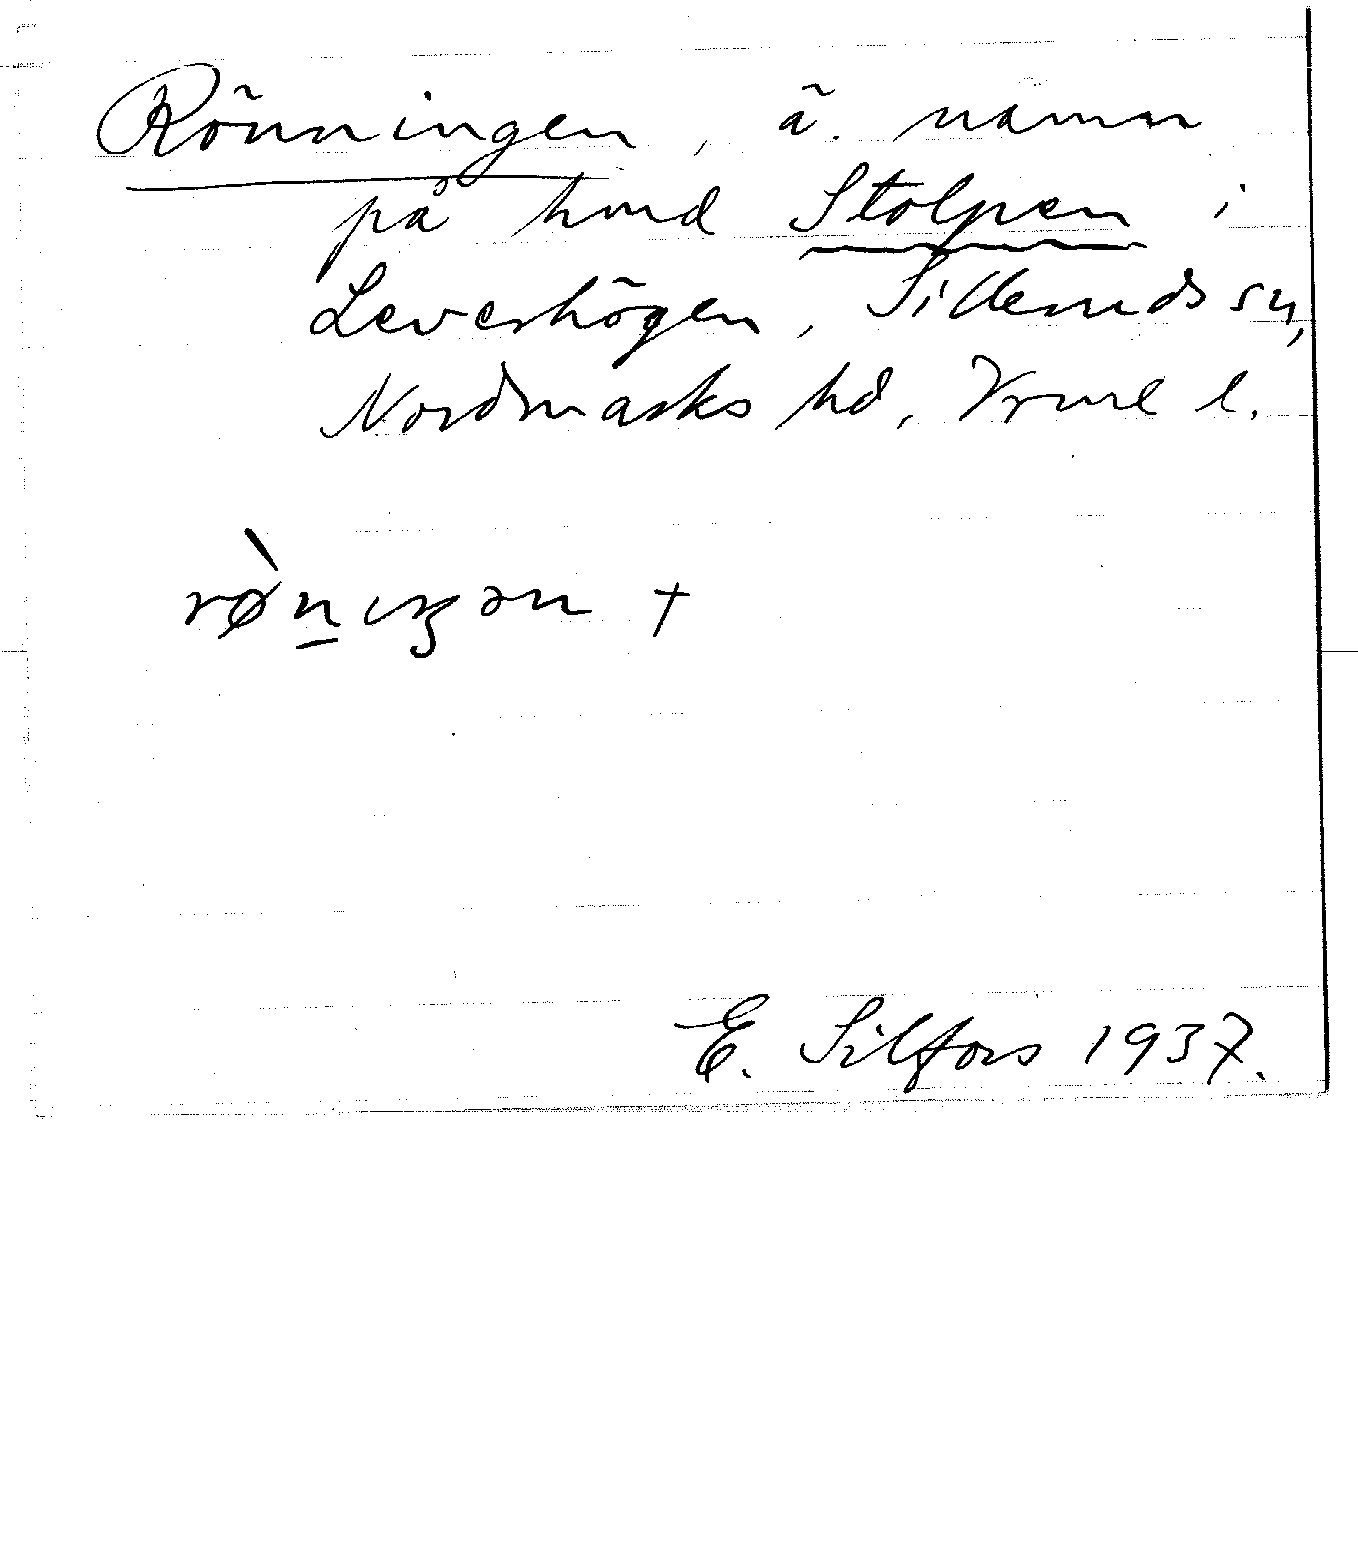 Rönningen, ä. namn
på hmd Stolpen i
Leverhögen, Silleruds sn,
Nordmarks hd, Vrml l.
rø̀nıŋən +
E. Silfors 1937.